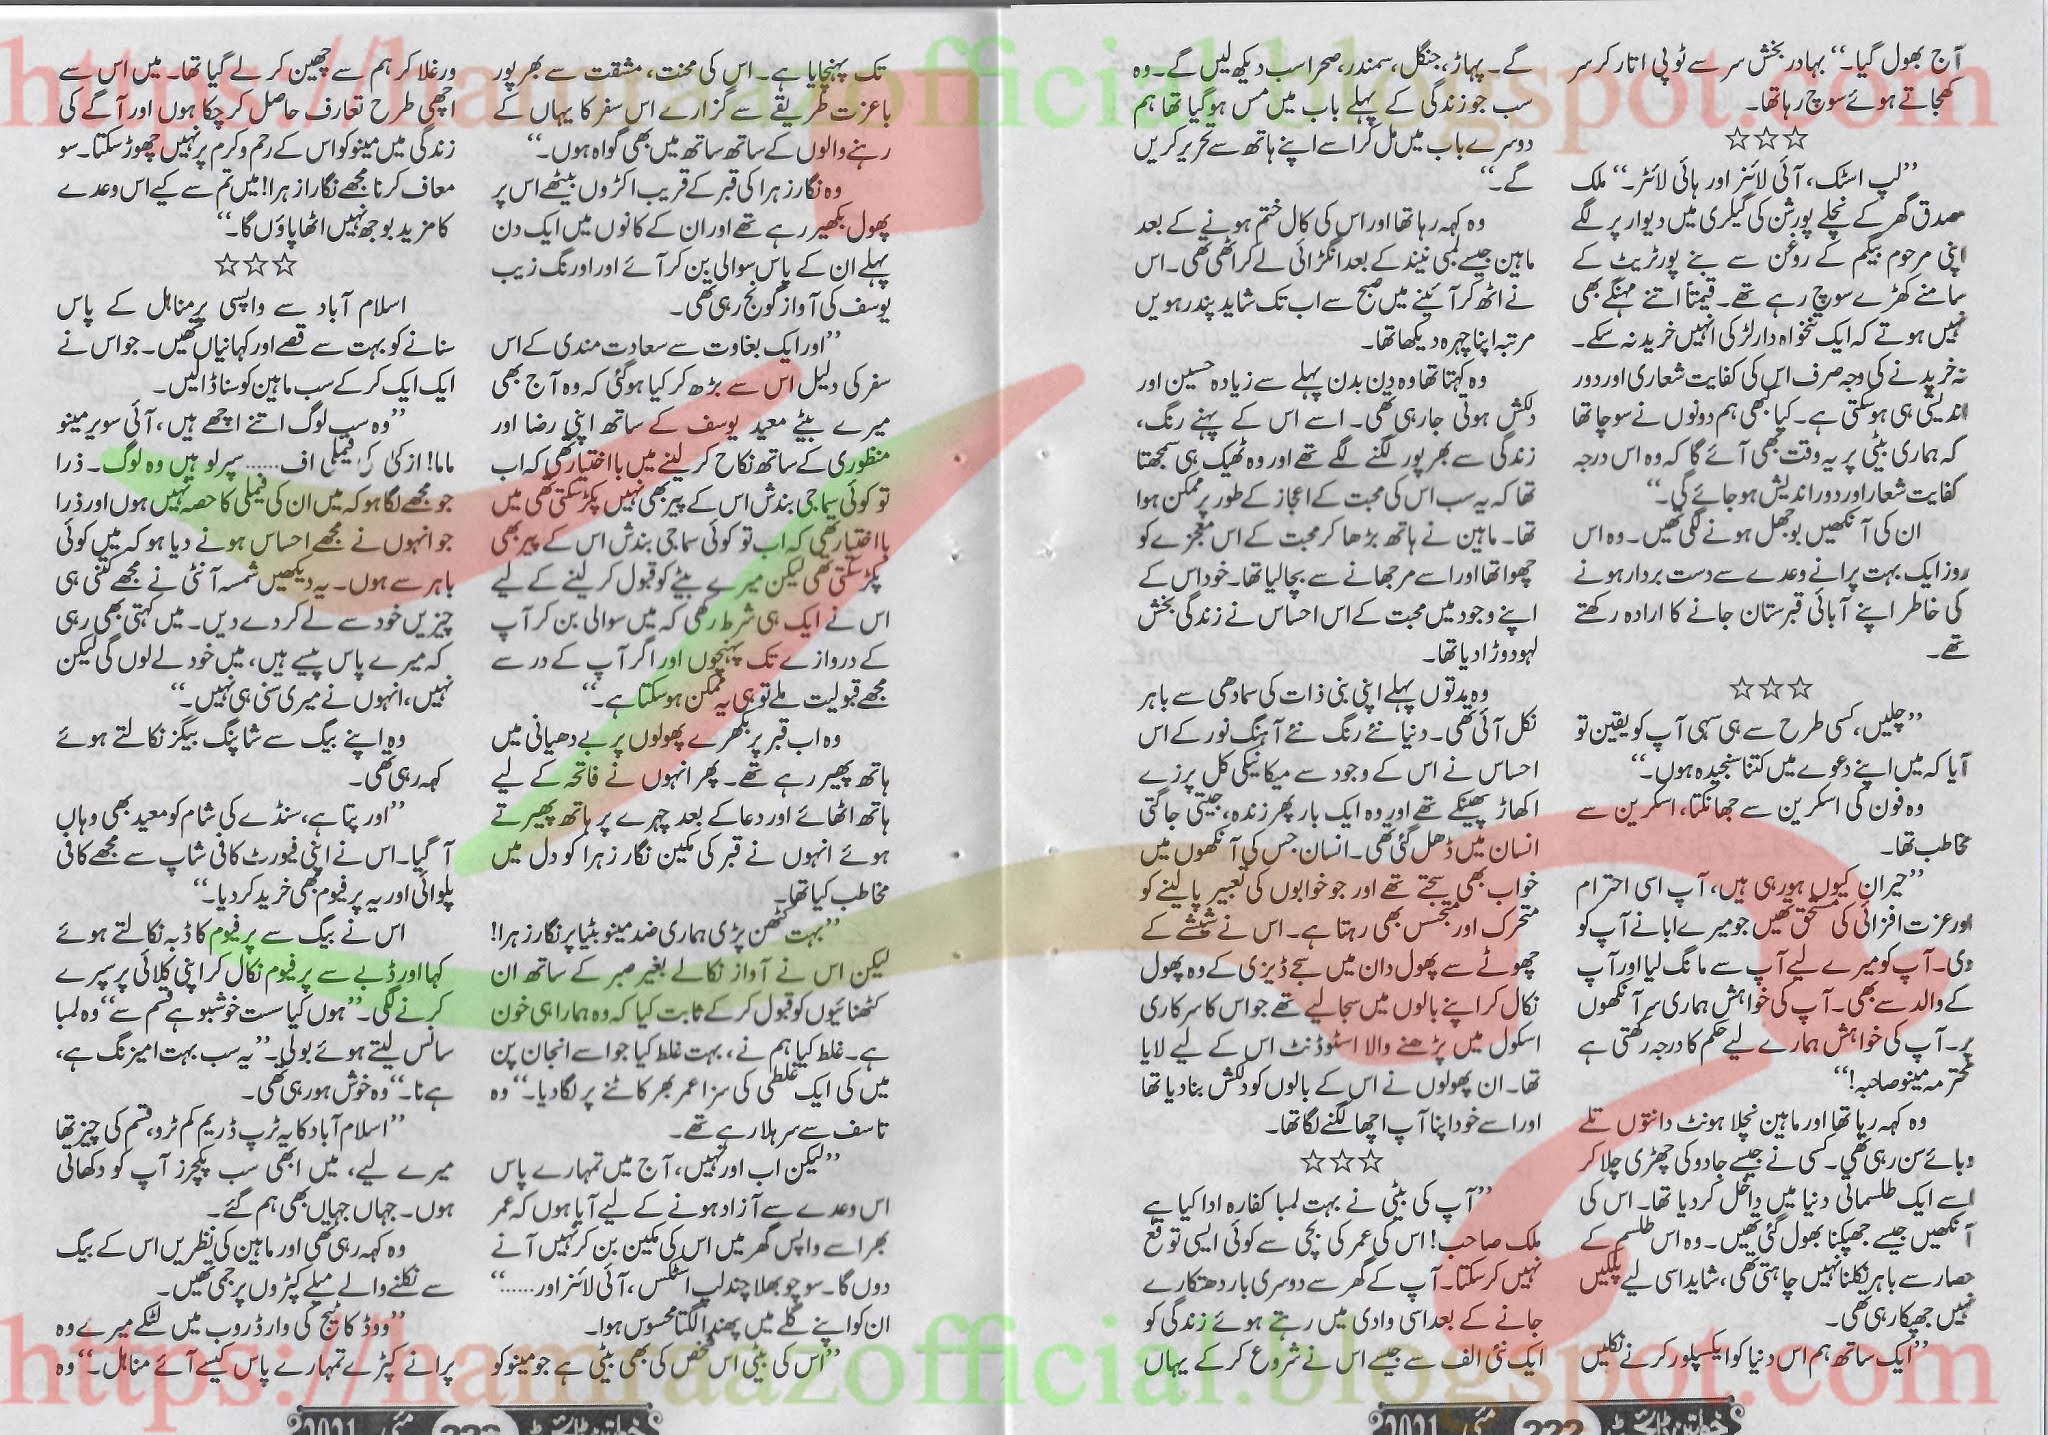 آج بھول گیا۔‘‘ بہادر بخش سر سے ٹوپی اتار کر سر
کھجاتے ہوئے سوچ رہا تھا۔
☆☆☆
’’لپ اسٹک، آئی لائنر اور ہائی لائٹر۔‘‘ ملک
مصدق گھر کے نچلے پورشن کی گیلری میں دیوار پر لگے
اپنی مرحوم بیگم کے روغن سے بنے پورٹریٹ کے
سامنے کھڑے سوچ رہے تھے۔ قیمتاً اتنے مہنگے بھی
نہیں ہوتے کہ ایک تنخواہ دار لڑکی انہیں خرید نہ سکے۔
نہ خریدنے کی وجہ صرف اس کی کفایت شعاری اور دور
اندیشی ہی ہوسکتی ہے۔ کیا کبھی ہم دونوں نے سوچا تھا
کہ ہماری بیٹی پر یہ وقت بھی آئے گا کہ وہ اس درجہ
کفایت شعار اور دور اندیش ہوجائے گی۔‘‘
ان کی آنکھیں بوجھل ہونے لگی تھیں۔ وہ اس
روز ایک بہت پرانے وعدے سے دست بردار ہونے
کی خاطر اپنے آبائی قبرستان جانے کا ارادہ رکھتے
تھے۔
☆☆☆
’’چلیں، کسی طرح سے ہی سہی آپ کو یقین تو
آیا کہ میں اپنے دعوے میں کتنا سنجیدہ ہوں۔‘‘
وہ فون کی اسکرین سے جھانکتا، اسکرین سے
مخاطب تھا۔
’’حیران کیوں ہورہی ہیں، آپ اسی احترام
اور عزت افزائی کی مستحق تھیں جو میرے ابا نے آپ کو
دی۔ آپ کو میرے لیے آپ سے مانگ لیا اور آپ
کے والد سے بھی۔ آپ کی خواہش ہماری سر آنکھوں
پر۔ آپ کی خواہش ہمارے لیے حکم کا درجہ رکھتی ہے
محترمہ مینو صاحبہ!‘‘
وہ کہہ رہا تھا اور ماہین نچلا ہونٹ دانتوں تلے
دبائے سن رہی تھی۔ کسی نے جیسے جادو کی چھڑی چلا کر
اسے ایک طلسماتی دنیا میں داخل کردیا تھا۔ اس کی
آنکھیں جیسے جھپکنا بھول گئی تھیں۔ وہ اس طلسم کے
حصار سے باہر نکلنا نہیں چاہتی تھی، شاید اسی لیے پلکیں
نہیں جھپکا رہی تھی۔
’’ایک ساتھ ہم اس دنیا کو ایکسپلور کرنے نکلیں
گے۔ پہاڑ، جنگل، سمندر، صحرا سب دیکھ لیں گے۔ وہ
سب جو زندگی کے پہلے باب میں مس ہوگیا تھا ہم
دوسرے باب میں مل کر اسے اپنے ہاتھ سے تحریر کریں
گے۔‘‘
وہ کہہ رہا تھا اور اس کی کال ختم ہونے کے بعد
ماہین جیسے لمبی نیند کے بعد انگڑائی لے کر اٹھی تھی۔ اس
نے اٹھ کر آئینے میں صبح سے اب تک شاید پندرہویں
مرتبہ اپنا چہرہ دیکھا تھا۔
وہ کہتا تھا وہ دن بدن پہلے سے زیادہ حسین اور
دلکش ہوتی جارہی تھی۔ اسے اس کے پہنے رنگ،
زندگی سے بھرپور لگنے لگے تھے اور وہ ٹھیک ہی سمجھتا
تھا کہ یہ سب اس کی محبت کے اعجاز کے طور پر ممکن ہوا
تھا۔ ماہین نے ہاتھ بڑھا کر محبت کے اس معجزے کو
چھوا تھا اور اسے مرجھانے سے بچالیا تھا۔ خود اس کے
اپنے وجود میں محبت کے اس احساس نے زندگی بخش
لہو دوڑا دیا تھا۔
وہ مدتوں پہلے اپنی بنی ذات کی سمادھی سے باہر
نکل آئی تھی۔ دنیا نئے رنگ نئے آہنگ نور کے اس
احساس نے اس کے وجود سے میکانیکی کل پرزے
اکھاڑ پھینکے تھے اور وہ ایک بار پھر زندہ، جیتی جاگتی
انسان میں ڈھل گئی تھی۔ انسان جس کی آنکھوں میں
خواب بھی سجتے تھے اور جو خوابوں کی تعبیر پالینے کو
متحرک اور متجسس بھی رہتا ہے۔ اس نے شیشے کے
چھوٹے سے پھول دان میں سجے ڈیزی کے وہ پھول
نکال کر اپنے بالوں میں سجالیے تھے جو اس کا سرکاری
اسکول میں پڑھنے والا اسٹوڈنٹ اس کے لیے لایا
تھا۔ ان پھولوں نے اس کے بالوں کو دلکش بنادیا تھا
اور اسے خود اپنا آپ اچھا لگنے لگا تھا۔
☆☆☆
’’آپ کی بیٹی نے بہت لمبا کفارہ ادا کیا ہے
ملک صاحب! اس کی عمر کی بچی سے کوئی ایسی توقع
نہیں کرسکتا۔ آپ کے گھر سے دوسری بار دھتکارے
جانے کے بعد اسی وادی میں رہتے ہوئے زندگی کو
ایک نئی الف سے جیسے اس نے شروع کرکے یہاں
خواتین ڈائجسٹ 222 مئی 2021
تک پہنچایا ہے۔ اس کی محنت، مشقت سے بھرپور
باعزت طریقے سے گزارے اس سفر کا یہاں کے
رہنے والوں کے ساتھ ساتھ میں بھی گواہ ہوں۔‘‘
وہ نگار زہرا کی قبر کے قریب اکڑوں بیٹھے اس پر
پھول بکھیر رہے تھے اور ان کے کانوں میں ایک دن
پہلے ان کے پاس سوالی بن کر آئے اور اورنگ زیب
یوسف کی آواز گونج رہی تھی۔
’’اور ایک بغاوت سے سعادت مندی کے اس
سفر کی دلیل اس سے بڑھ کر کیا ہوگی کہ وہ آج بھی
میرے بیٹے معید یوسف کے ساتھ اپنی رضا اور
منظوری کے ساتھ نکاح کرلینے میں بااختیار تھی کہ اب
تو کوئی سماجی بندش اس کے پیر بھی نہیں پکڑ سکتی تھی میں
بااختیار تھی کہ اب تو کوئی سماجی بندش اس کے پیر بھی
پکڑ سکتی تھی لیکن میرے بیٹے کو قبول کرلینے کے لیے
اس نے ایک ہی شرط رکھی کہ میں سوالی بن کر آپ
کے دروازے تک پہنچوں اور اگر آپ کے در سے
مجھے قبولیت ملے تو ہی یہ ممکن ہوسکتا ہے۔‘‘
وہ اب قبر پر بکھرے پھولوں پر بے دھیانی میں
ہاتھ پھیر رہے تھے۔ پھر انہوں نے فاتحہ کے لیے
ہاتھ اٹھائے اور دعا کے بعد چہرے پر ہاتھ پھیرتے
ہوئے انہوں نے قبر کی مکین نگار زہرا کو دل میں
مخاطب کیا تھا۔
’’بہت کٹھن پڑی ہماری ضد مینو بٹیا پر نگار زہرا!
لیکن اس نے آواز نکالے بغیر صبر کے ساتھ ان
کٹھنائیوں کو قبول کرکے ثابت کیا کہ وہ ہمارا ہی خون
ہے۔ غلط کیا ہم نے، بہت غلط کیا جو اسے انجان پن
میں کی ایک غلطی کی سزا عمر بھر کاٹنے پر لگادیا۔‘‘ وہ
تاسف سے سر ہلا رہے تھے۔
’’لیکن اب اور نہیں، آج میں تمہارے پاس
اس وعدے سے آزاد ہونے کے لیے آیا ہوں کہ عمر
بھر اسے واپس گھر میں اس کی مکین بن کر نہیں آنے
دوں گا۔ سوچو بھلا چند لپ اسٹکس، آئی لائنر اور......‘‘
ان کو اپنے گلے میں پھندا لگتا محسوس ہوا۔
’’اس کی بیٹی اس شخص کی بھی بیٹی ہے جو مینو کو
ورغلا کر ہم سے چھین کر لے گیا تھا۔ میں اس سے
اچھی طرح تعارف حاصل کرچکا ہوں اور آگے کی
زندگی میں مینو کو اس کے رحم و کرم پر نہیں چھوڑ سکتا۔ سو
معاف کرنا مجھے نگار زہرا! میں تم سے کیے اس وعدے
کا مزید بوجھ نہیں اٹھا پاؤں گا۔‘‘
☆☆☆
اسلام آباد سے واپسی پر مناہل کے پاس
سنانے کو بہت سے قصے اور کہانیاں تھیں۔ جو اس نے
ایک ایک کرکے سب ماہین کو سنا ڈالیں۔
’’وہ سب لوگ اتنے اچھے ہیں، آئی سویر مینو
ماما! ازکیٰ کی فیملی اف...... سپر لو ہیں وہ لوگ۔ ذرا
جو مجھے لگا ہو کہ میں ان کی فیملی کا حصہ نہیں ہوں اور ذرا
جو انہوں نے مجھے احساس ہونے دیا ہو کہ میں کوئی
باہر سے ہوں۔ یہ دیکھیں شمسہ آنٹی نے مجھے کتنی ہی
چیزیں خود سے لے کر دے دیں۔ میں کہتی بھی رہی
کہ میرے پاس پیسے ہیں، میں خود لے لوں گی لیکن
نہیں، انہوں نے میری سنی ہی نہیں۔‘‘
وہ اپنے بیگ سے شاپنگ بیگز نکالتے ہوئے
کہہ رہی تھی۔
’’اور پتا ہے، سنڈے کی شام کو معید بھی وہاں
آ گیا۔ اس نے اپنی فیورٹ کافی شاپ سے مجھے کافی
پلوائی اور یہ پرفیوم بھی خرید کر دیا۔‘‘
اس نے بیگ سے پرفیوم کا ڈبہ نکالتے ہوئے
کہا اور ڈبے سے پرفیوم نکال کر اپنی کلائی پر سپرے
کرنے لگی۔ ’’ہوں کیا مست خوشبو ہے قسم سے‘‘ وہ لمبا
سانس لیتے ہوئے بولی۔ ’’یہ سب بہت امیزنگ ہے،
ہے نا۔‘‘ وہ خوش ہورہی تھی۔
’’اسلام آباد کا یہ ٹرپ ڈریم کم ٹرو، قسم کی چیز تھا
میرے لیے، میں ابھی سب پکچرز آپ کو دکھاتی
ہوں۔ جہاں جہاں بھی ہم گئے۔
وہ کہہ رہی تھی اور ماہین کی نظریں اس کے بیگ
سے نکلنے والے میلے کپڑوں پر جمی تھیں۔
’’ووڈ کاٹیج کی وارڈروب میں لٹکے میرے وہ
پرانے کپڑے تمہارے پاس کیسے آئے مناہل۔‘‘ وہ
خواتین ڈائجسٹ 223 مئی 2021
https://hamraazofficial.blogspot.com
https://hamraazofficial.blogspot.com